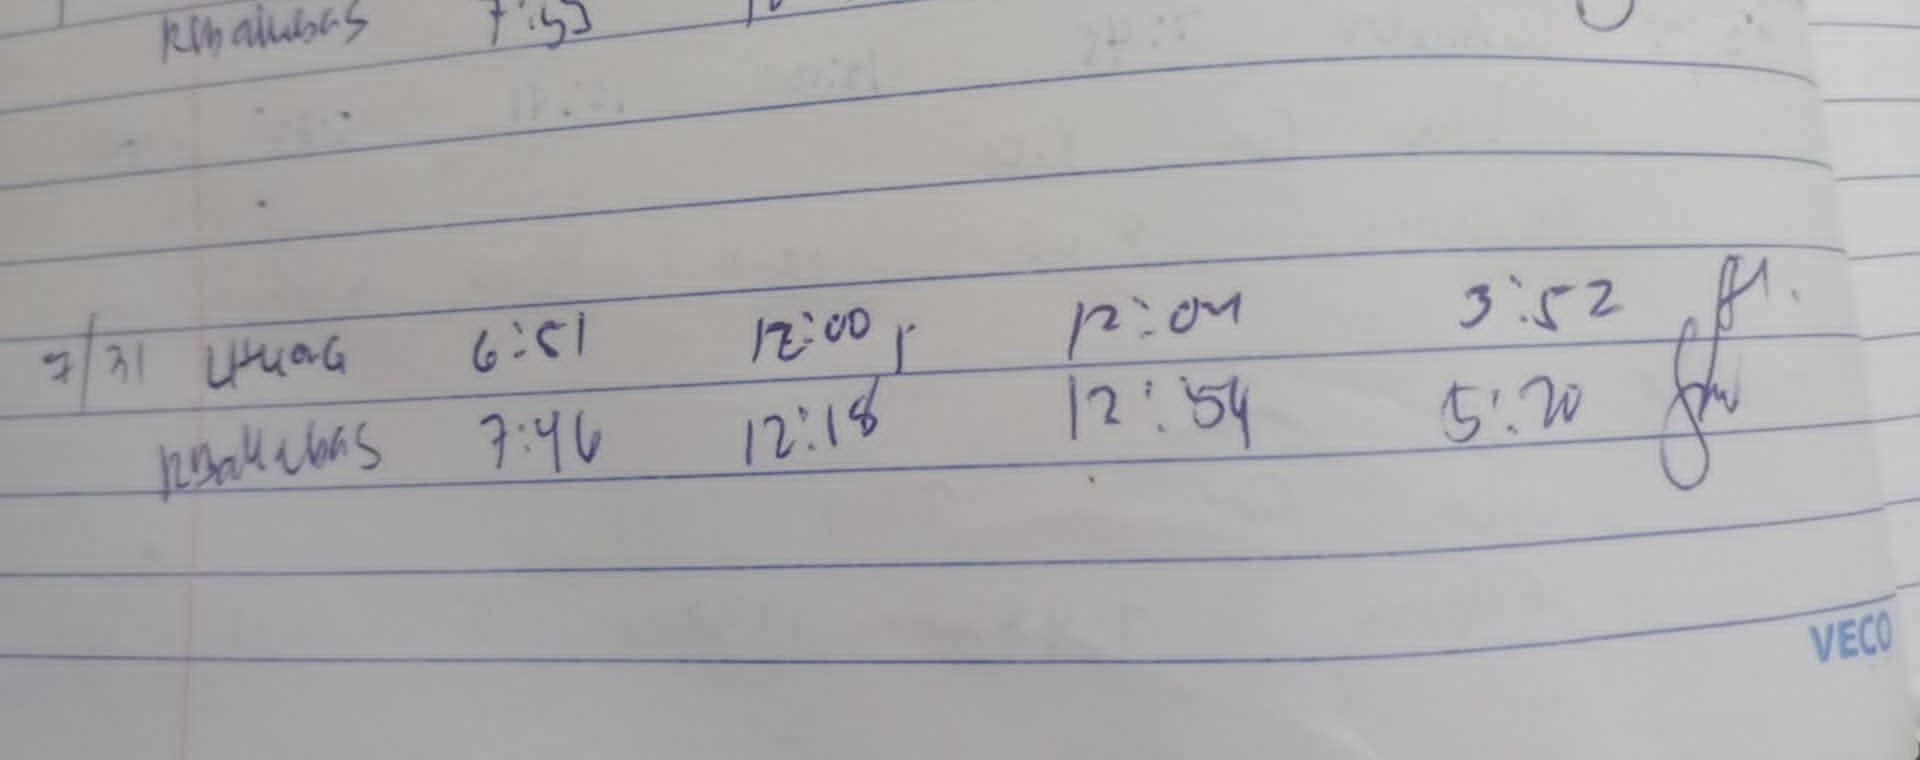 RBalubas 7:53
7/31 6:51 12:00 12:04 3:52
RBalubas 7:46 12:18 12:54 5:20
VECO